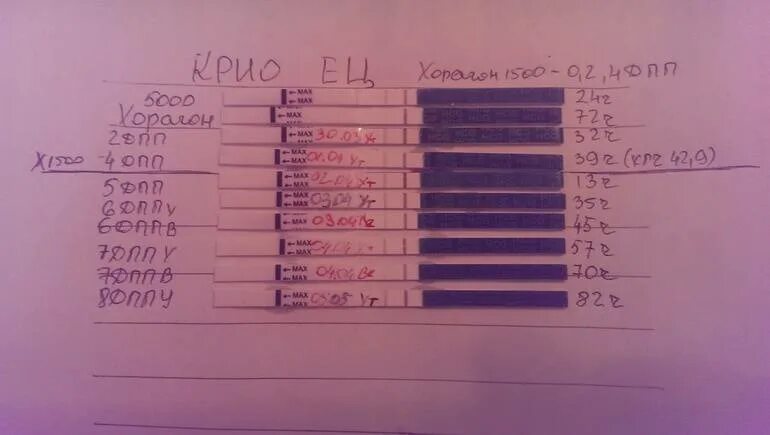 КРИО ЕЦ Хорагон 1500 - 0,2,4 ДПП
5000 MAX MAX 24ч
Хорагон MAX 72ч
2 ДПП MAX 30.03 Ут 32ч
Х1500 4 ДПП MAX MAX 01.04 Ут 39ч (хгч 42,9)
5 ДПП MAX MAX 02.04 Ут 13ч
6 ДПП У MAX MAX 03.04 Ут 35ч
6 ДПП В MAX 03.04 Ве 45ч
7 ДПП У MAX MAX 04.04 Ут 57ч
7 ДПП В MAX MAX 04.04 Ве 70ч
8 ДПП У MAX MAX 05.05 Ут 82ч